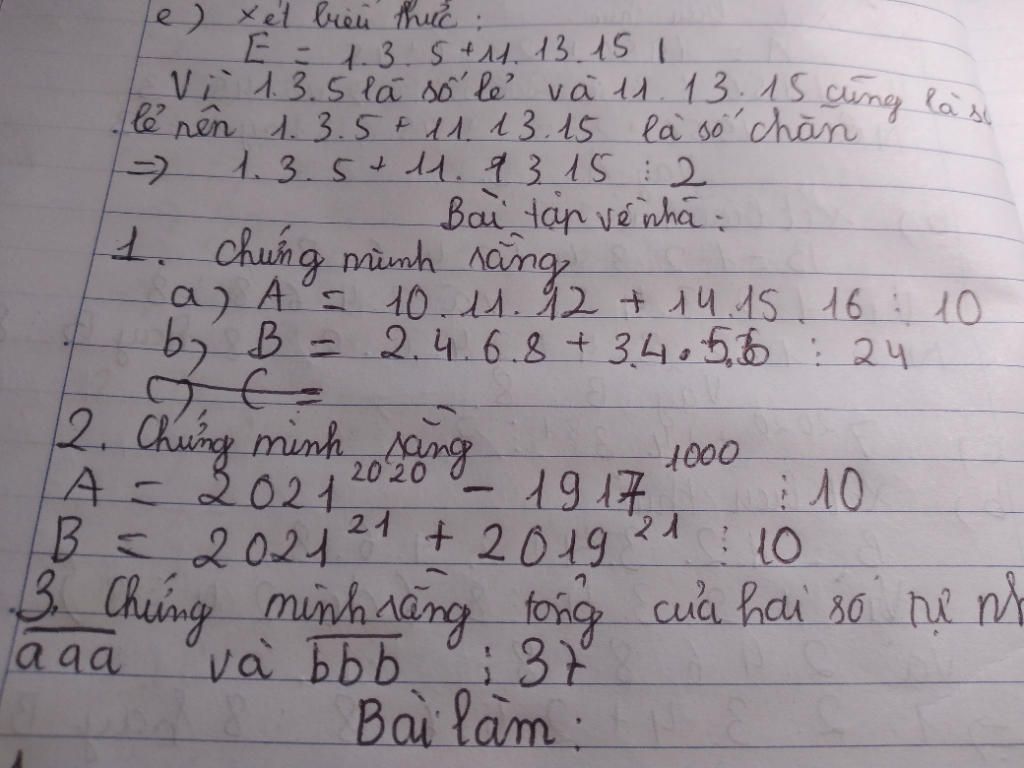 e) Xét biểu thức:
E = 1.3.5+11.13.15
Vì 1.3.5 là số lẻ và 11.13.15 cũng là số
lẻ nên 1.3.5+11.13.15 là số chẵn
=> 1.3.5+11.13.15 ⋮ 2
Bài tập về nhà:
1. Chứng minh rằng
a) A = 10.11.12 + 14.15.16 ⋮ 10
b) B = 2.4.6.8 + 3.4.5.6 ⋮ 24
2. Chứng minh rằng
A = 2021²⁰²⁰ - 1917¹⁰⁰⁰ ⋮ 10
B = 2021²¹ + 2019²¹ ⋮ 10
3. Chứng minh rằng tổng của hai số tự nh
aaa và bbb ⋮ 37
Bài làm: